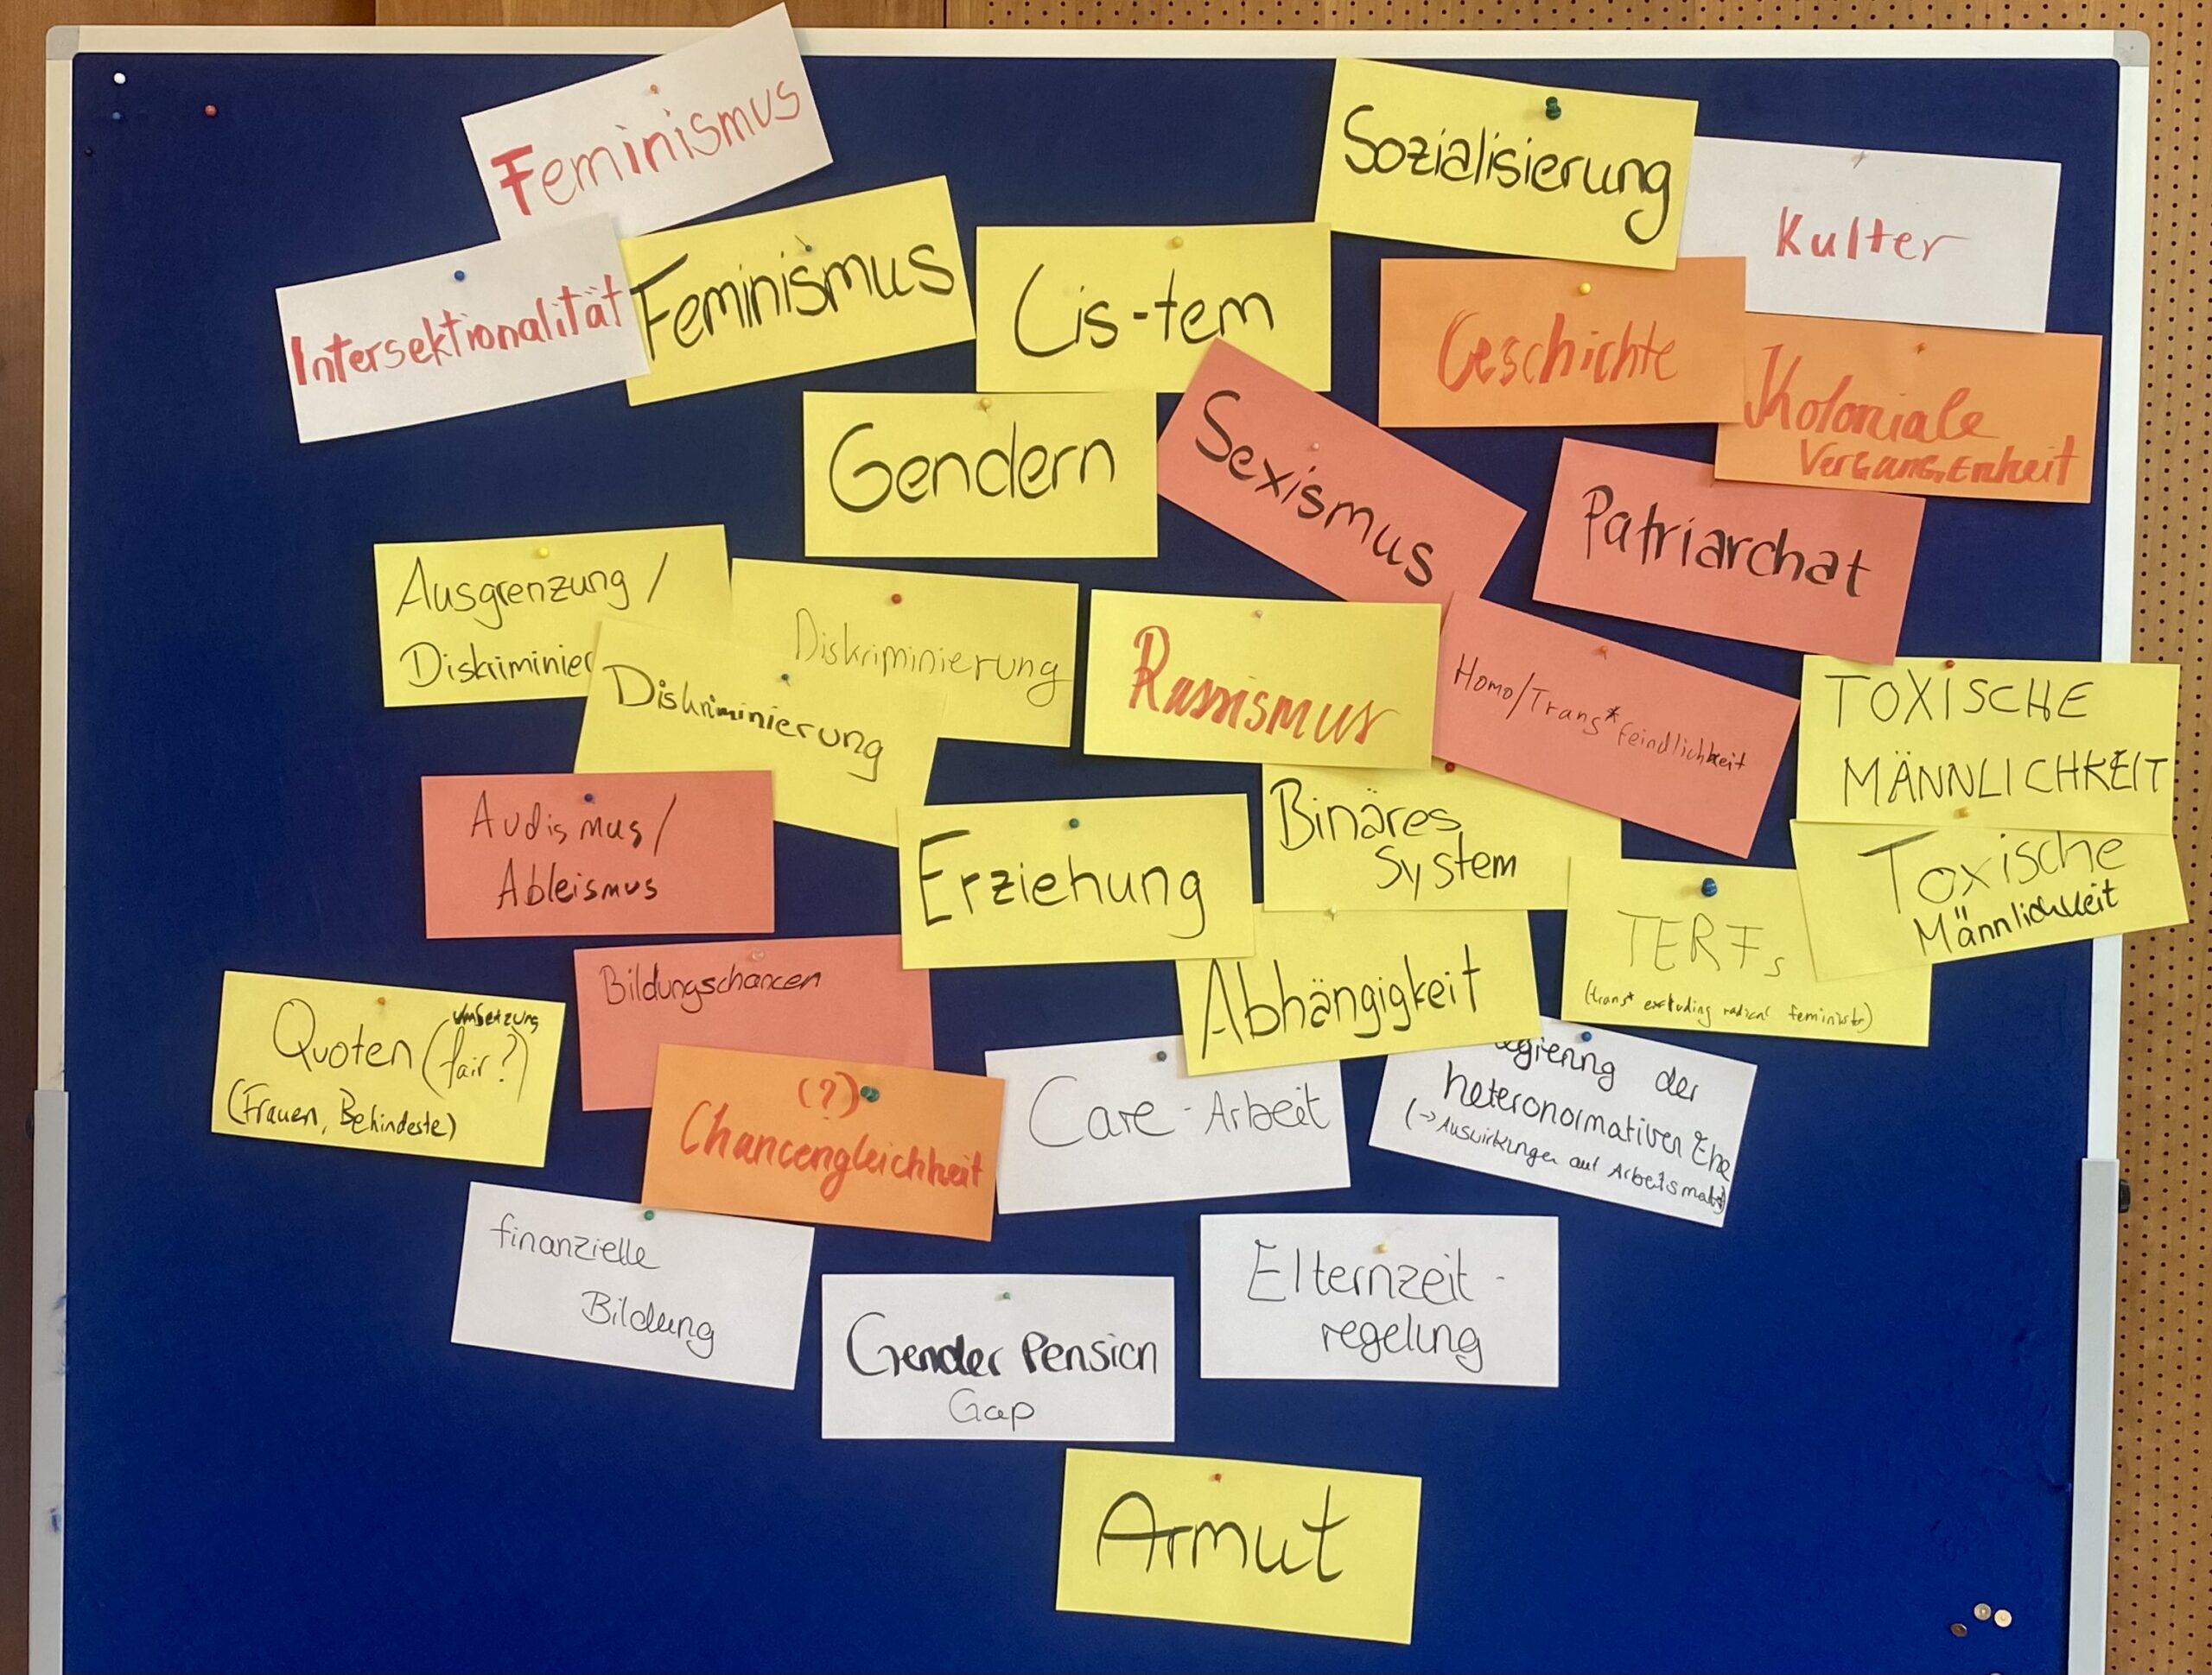 Feminismus
Sozialisierung
Kulter
Intersektionalität
Feminismus
Cis-tem
Geschichte
Koloniale
Vergangenheit
Gendern
Sexismus
Patriarchat
Ausgrenzung /
Diskriminier
Diskriminierung
Diskriminierung
Rassismus
Homo/Trans*feindlichkeit
TOXISCHE
MÄNNLICHKEIT
Audismus/
Ableismus
Erziehung
Binäres
System
Toxische
Männlichkeit
TERFs
(trans* excluding radical feminists)
Bildungschancen
Abhängigkeit
Quoten (Umsetzung
fair?)
(Frauen, Behinderte)
(?)
Chancengleichheit
Care-Arbeit
der
heteronormativen Ehe
(→ Auswirkungen auf Arbeitsmarkt)
finanzielle
Bildung
Elternzeit-
regelung
Gender Pension
Gap
Armut